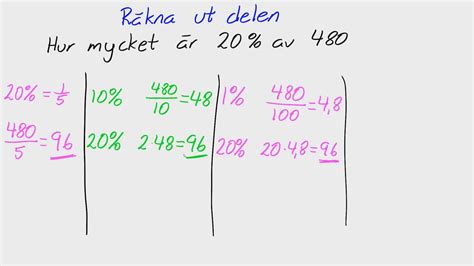 Räkna ut delen
Hur mycket är 20% av 480
20% = 1/5
480/5 = 96
10% 480/10 = 48
20% 2·48 = 96
1% 480/100 = 4,8
20% 20·4,8 = 96